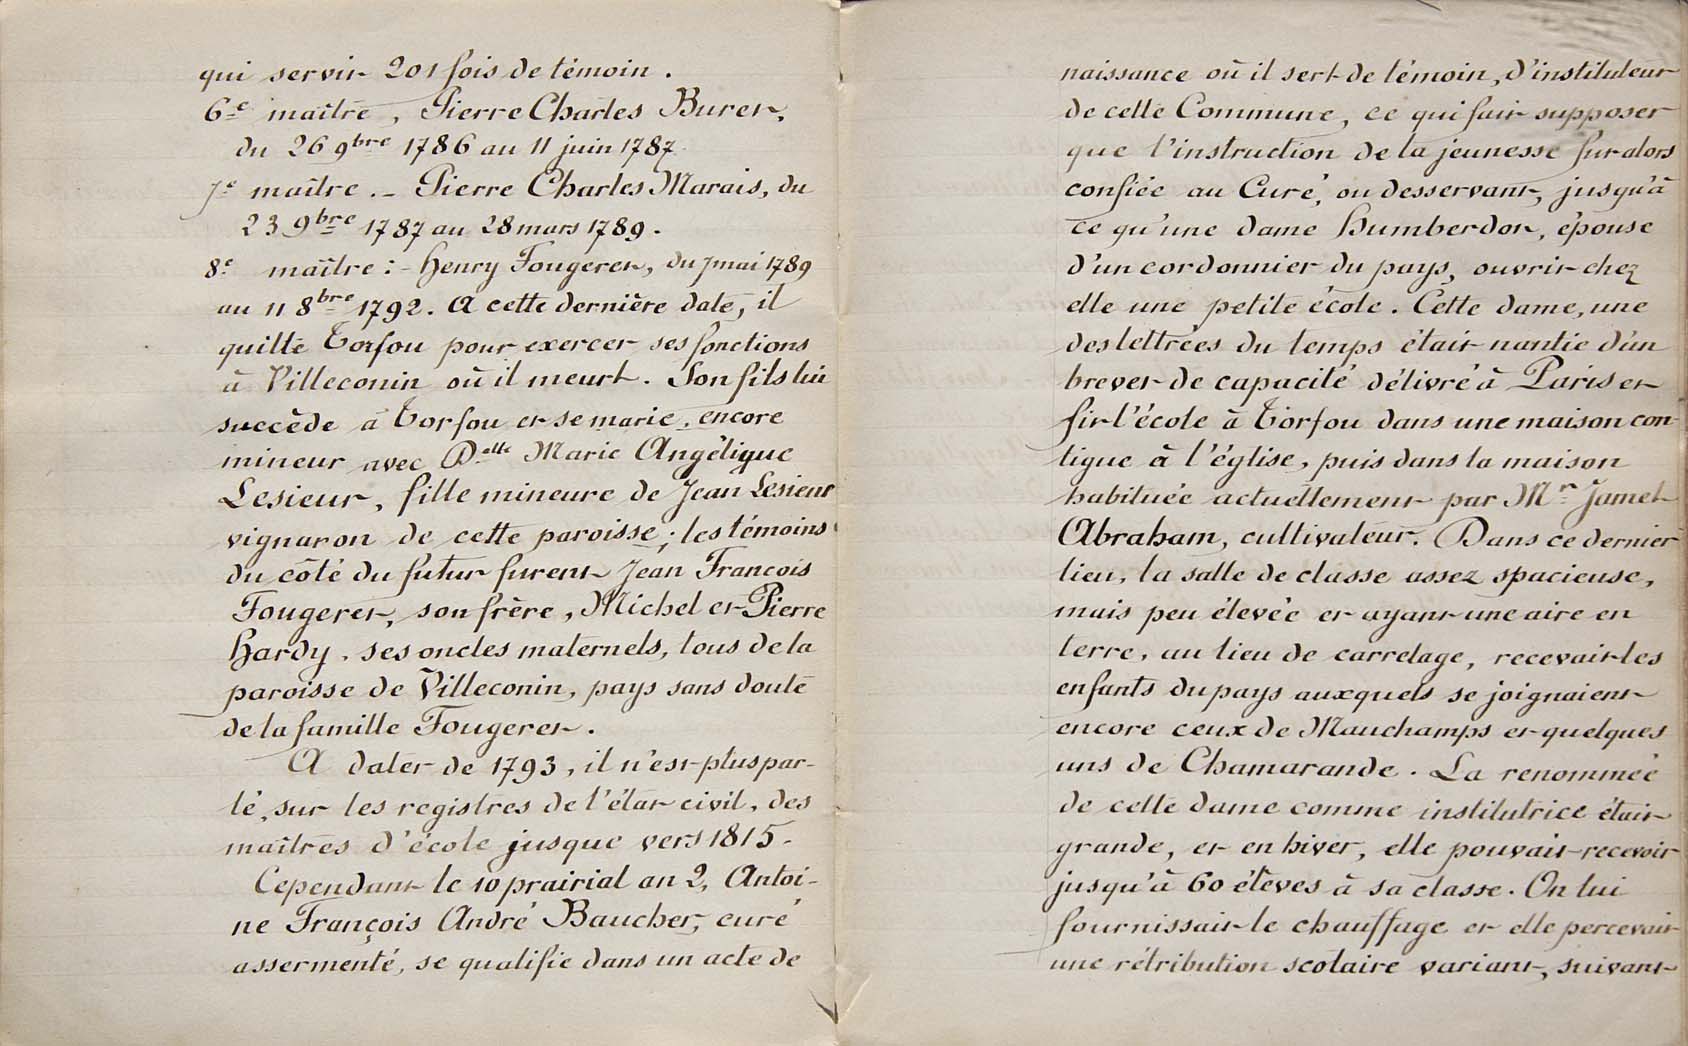 qui servit 201 fois de témoin.
6e maître, Pierre Charles Buret,
du 26 9bre 1786 au 11 juin 1787.
7e maître. - Pierre Charles Marais, du
23 9bre 1787 au 28 mars 1789.
8e maître :- Henry Fougeret, du 7 mai 1789
au 11 8bre 1792. A cette dernière date, il
quitte Torfou pour exercer ses fonctions
à Villeconin où il meurt. Son fils lui
succède à Torfou et se marie, encore
mineur avec Delle Marie Angélique
Lesieur, fille mineure de Jean Lesieur
vigneron de cette paroisse; les témoins
du côté du futur furent Jean François
Fougeret, son frère, Michel et Pierre
Hardy, ses oncles maternels, tous de la
paroisse de Villeconin, pays sans doute
de la famille Fougeret.
A dater de 1793, il n'est plus par-
lé, sur les registres de l'état civil, des
maîtres d'école jusque vers 1815.
Cependant le 10 prairial an 2, Antoi-
ne François André Baucher, curé
assermenté, se qualifie dans un acte de
naissance où il sert de témoin, d'instituteur
de cette Commune, ce qui fait supposer
que l'instruction de la jeunesse fut alors
confiée au Curé, ou desservant, jusqu'à
ce qu'une dame Humberdot, épouse
d'un cordonnier du pays, ouvrit chez
elle une petite école. Cette dame, une
des lettrées du temps était nantie d'un
brevet de capacité délivré à Paris et
fit l'école à Torfou dans une maison con-
tigue à l'église, puis dans la maison
habituée actuellement par Mr Jamet
Abraham, cultivateur. Dans ce dernier
lieu, la salle de classe assez spacieuse,
mais peu élevée et ayant une aire en
terre, au lieu de carrelage, recevait les
enfants du pays auxquels se joignaient
encore ceux de Mauchamps et quelques
uns de Chamarande. La renommée
de cette dame comme institutrice était
grande, et en hiver, elle pouvait recevoir
jusqu'à 60 élèves à sa classe. On lui
fournissait le chauffage et elle percevait
une rétribution scolaire variant, suivant